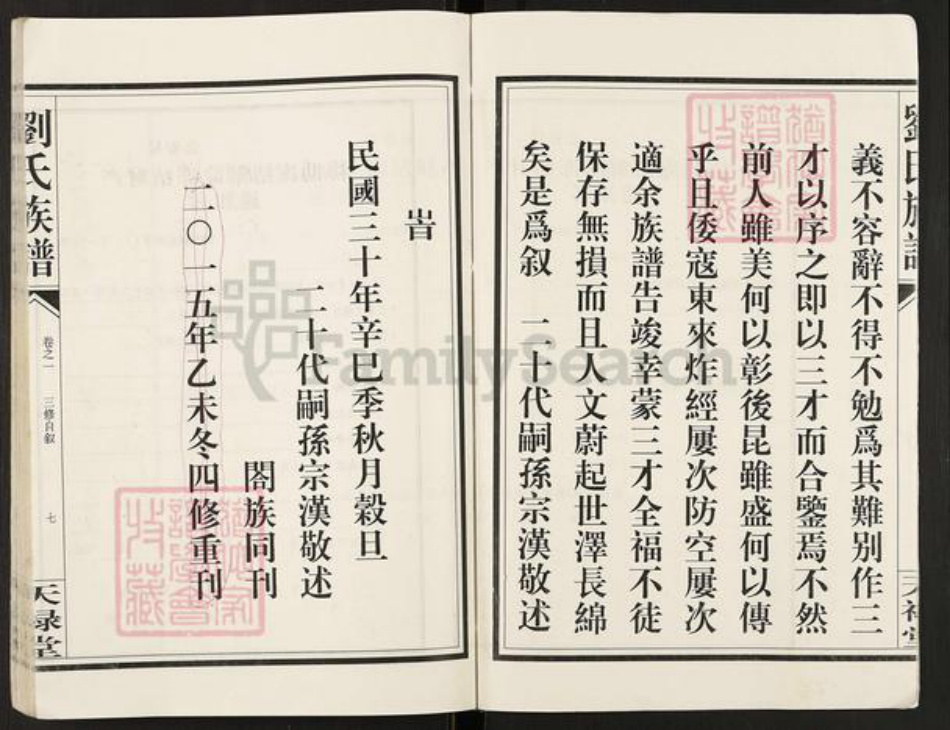 劉氏族譜
義不容辭不得不勉爲其難别作三
才以序之即以三才而合鑒焉不然
前人雖美何以彰後昆雖盛何以傳
乎且倭寇東來炸經屢次防空屢次
適余族譜告竣幸蒙三才全福不徒
保存無損而且人文蔚起世澤長綿
矣是爲叙 二十代嗣孫宗漢敬述
旹
民國三十年辛巳季秋月穀旦
二十代嗣孫宗漢敬述
閤族同刊
二〇一五年乙未冬四修重刊
劉氏族譜
卷之一 三修自叙 七
天禄堂
FamilySearch